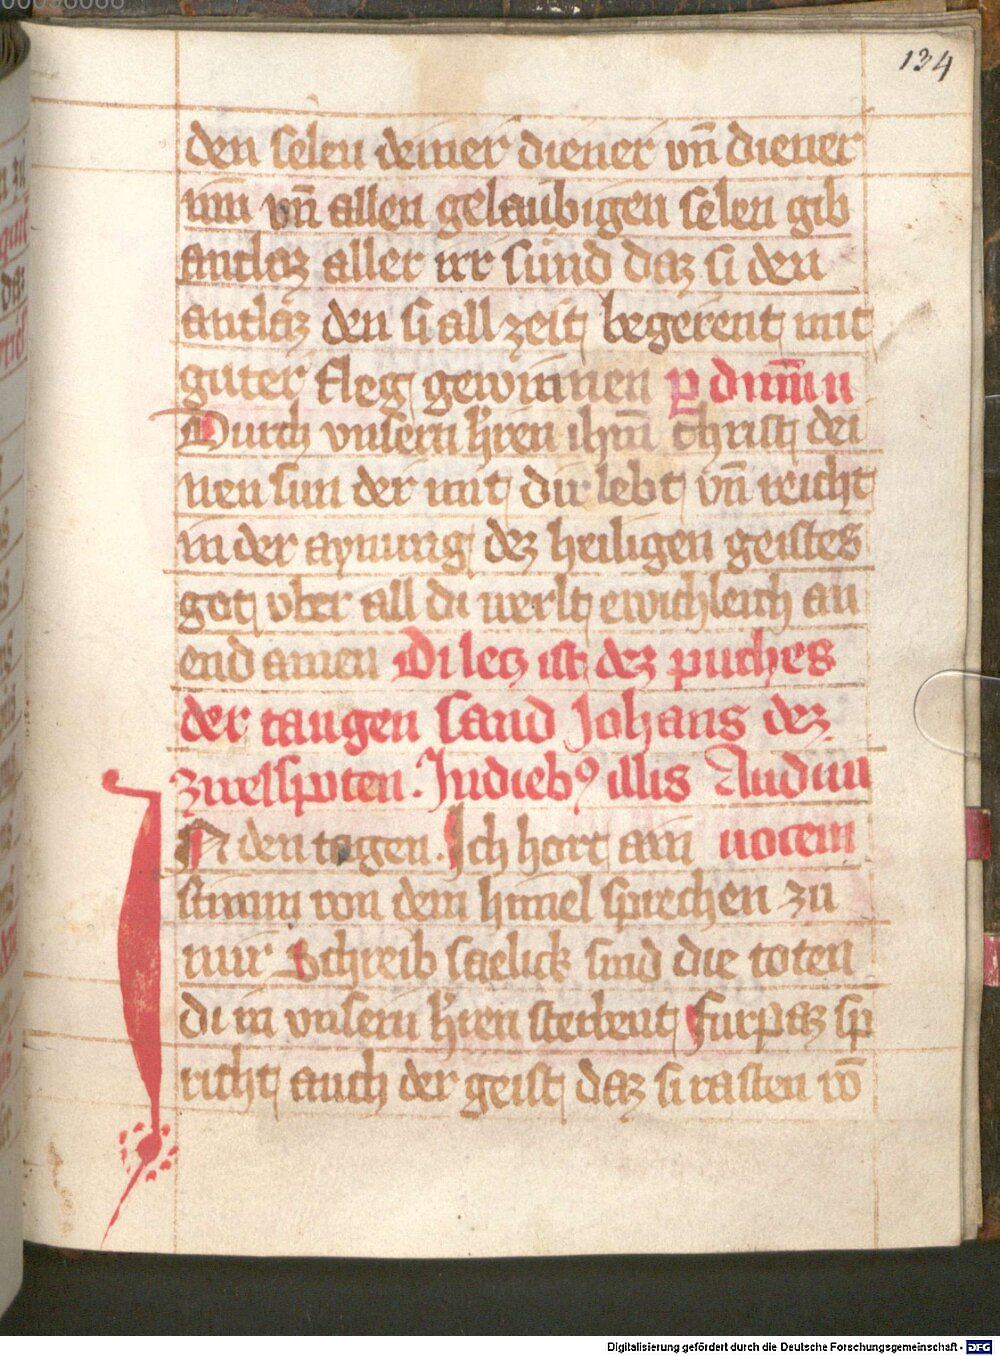 134
den selen deiner diener vn̄ diener
inn vn̄ allen gelaubigen selen gib
antlaz aller irr sünd daz si den
antlaz den si all zeit begerent mit
guter fleg gewinnen p dmm̄ n
Durch vnsern h'ren ihm̄ christ dei
nen sun der mit dir lebt vn̄ reicht
in der aynung dez heiligen geistes
got vber all di werlt ewichleich an
end amen Di lecz ist dez puches
der taugen sand Johans dez
zwelfpoten. In dieb9 illis Audiui
IN den tagen. Ich hort ain uocem
stimm von dem himel sprechen zu
mir Schreib saelick sind die toten
di in vnsern h'ren sterbent furpaz sp
richt auch der geist daz si rasten vō
Digitalisierung gefördert durch die Deutsche Forschungsgemeinschaft - DFG